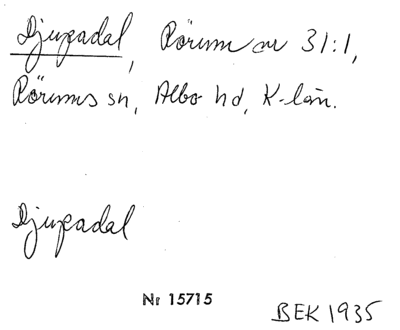 Djupadal, Rörum nr 31:1,
Rörums sn, Albo hd, K-län.
Djupadal
Nr 15715
BEK 1935